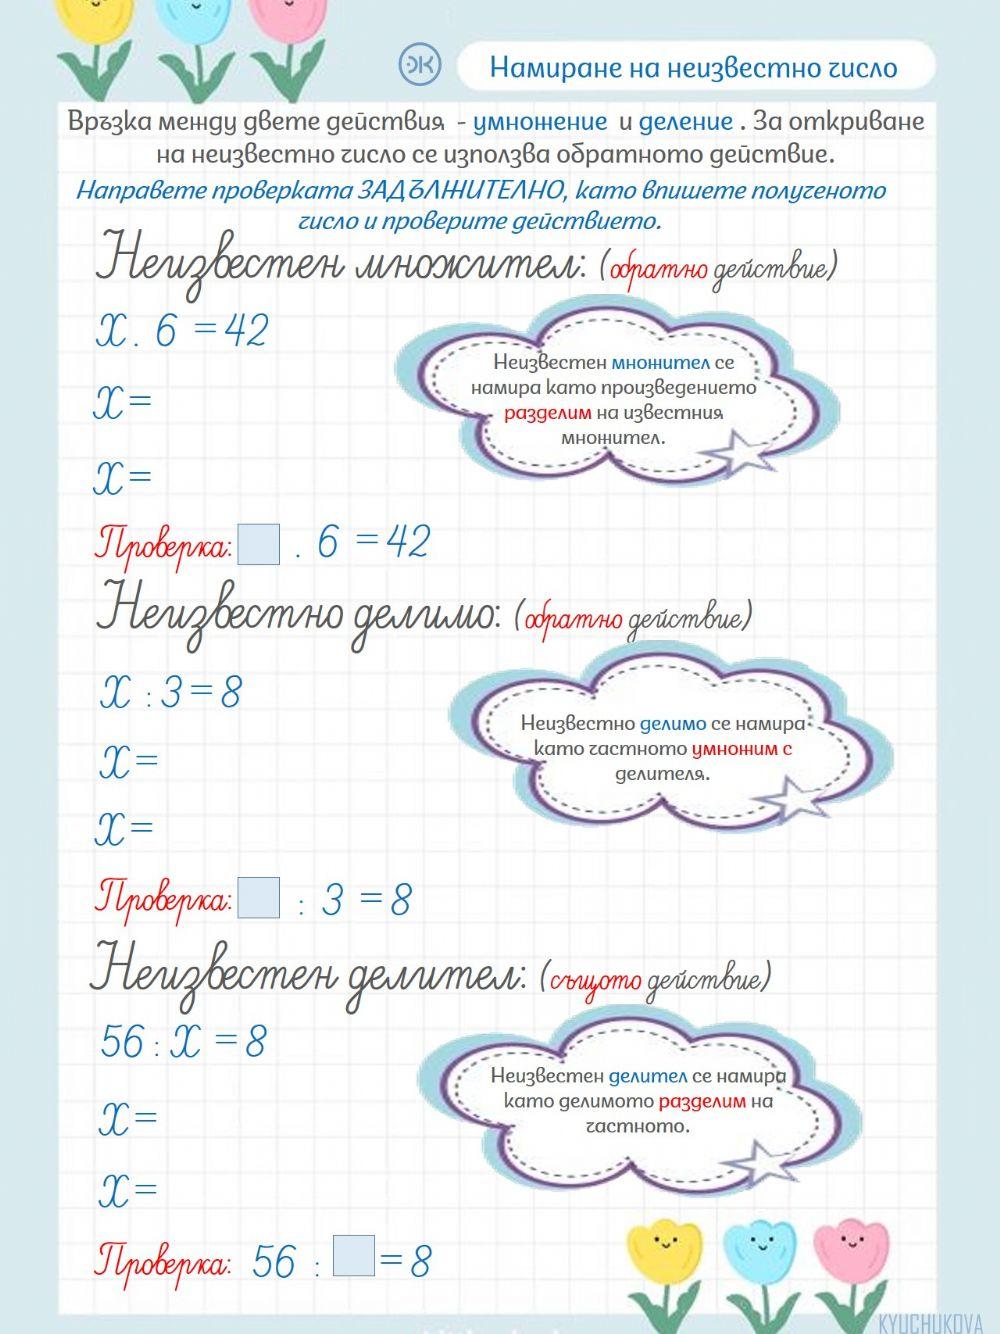 Намиране на неизвестно число
Връзка между двете действия - умножение и деление . За откриване
на неизвестно число се използва обратното действие.
Направете проверката ЗАДЪЛЖИТЕЛНО, като впишете полученото
число и проверите действието.
Неизвестен множител: (обратно действие)
X . 6 = 42
X =
X =
Неизвестен множител се
намира като произведението
разделим на известния
множител.
Проверка: . 6 = 42
Неизвестно делимо: (обратно действие)
X : 3 = 8
X =
X =
Неизвестно делимо се намира
като частното умножим с
делителя.
Проверка: : 3 = 8
Неизвестен делител: (същото действие)
56 : X = 8
X =
X =
Неизвестен делител се намира
като делимото разделим на
частното.
Проверка: 56 : = 8
KYUCHUKOVA